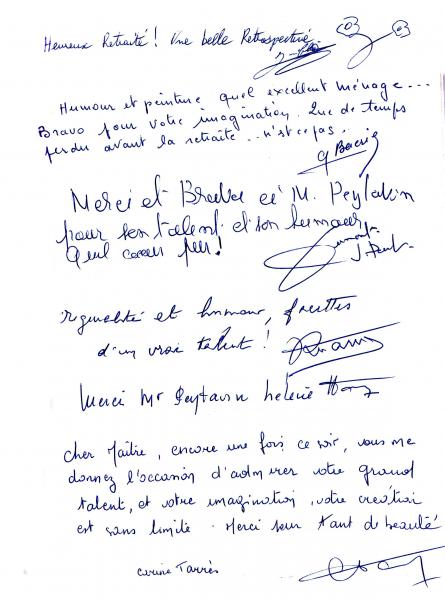 Heureux Retraité ! Une belle Retrospective
Humour et peinture quel excellent ménage...
Bravo pour votre imagination. Que de temps
perdu avant la retraite... n'est ce pas.
G
Merci et Bravo à M. Peytavin
pour son talent et son humour
Quel
originalité et humour, fruittes
d'un vrai talent !
Merci Mr Peytavin helène
Cher Maître, encore une fois ce soir, vous me
donnez l'occasion d'admirer votre grand
talent, et votre imagination, votre création
est sans limite. Merci pour tant de beauté
Corine Tarrès